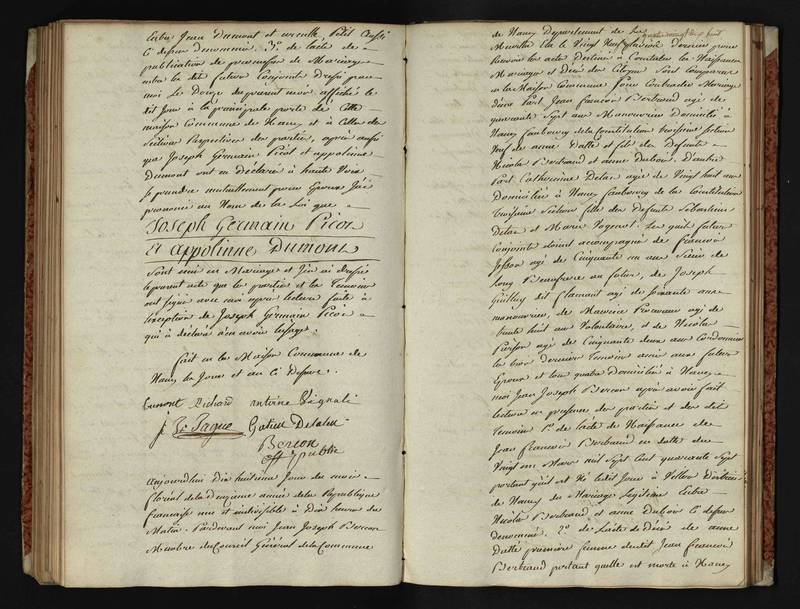 entre Jean Dumont et Petit aussi
Ci dessus Denommée. 3.° de l'acte de
publication de promesses de Mariage
entre le dit futur Conjoints Dressé par
moi Le Douze du présent mois affichée le
dit Jour à la principale porte de Cette
maison Commune de Nancy et à Celles des
Sections Respectives des parties, après aussi
que Joseph Germain Picot et appoline
Dumont ont eu Déclaré à haute Voix
se prendre mutuellement pour Epoux J'ai
prononcé au Nom de la Loi que
Joseph Germain Picot
Et Appolinne Dumont
sont unis en Mariage et J'en ai dressé
le présent acte que les parties et les Temoins
ont signé avec moi après lecture faite à
l'exception de Joseph Germain Picot
qui a déclaré n'en avoir l'usage.
fait en la Maison Commune de
Nancy les Jour et an Ci Dessus.
Dumont Richard antoine
Gatien
Berson
off public
Aujourd'hui Dix huitième Jour du mois
floréal de la Deuxième année de la République
française une et indivisible à Dix heures du
Matin. Pardevant moi Jean Joseph Berson
Membre du Conseil Général de la Commune
de Nancy Département de la
Meurthe Elu le Vingt Dernier pour
Recevoir les actes Destinés à Constater les Naissances
Mariages et Décès des Citoyens Sont Comparus
en la Maison Commune pour Contracter Mariage
D'une Part Jean francois Bertrand agé de
quarante Sept ans Manouvrier Domicilié à
Nancy faubourg de la Constitution troisieme section
Veuf de anne Datte et fils des Defunts
Nicolas Bertrand et anne Dubois. D'autre
Part Catherinne Delac agée de Vingt huit ans
Domiciliée à Nancy faubourg de la Constitution
troisième Section fille des Defunts Sebastien
Delac et Marie. Les quels futurs
Conjoints étaient accompagnés de francois
agé de Cinquante un ans
Long Beaufrere au futur, de Joseph
dit flamant agé de soixante ans
manouvrier, de Maurice agé de
trente huit ans Volontaire, et de Nicolas
Pierson agé de Cinquante deux ans Cordonnier
les trois derniers Temoins amis aux futurs
Epoux et tous quatre Domiciliés à Nancy
moi Jean Joseph Berson après avoir fait
lecture en présence des parties et des dits
Temoins 1.° de l'acte de Naissance de
Jean francois Bertrand en datte du
Vingt un Mars mil Sept Cent quarante Sept
portant qu'il est Né ledit Jour à
de Nancy du Mariage Legitime Entre
Nicolas Bertrand et anne Dubois Ci dessus
Denommés. 2.° de l'acte de Décès de anne
Datte première femme dudit Jean francois
Bertrand portant quelle est morte à Nancy